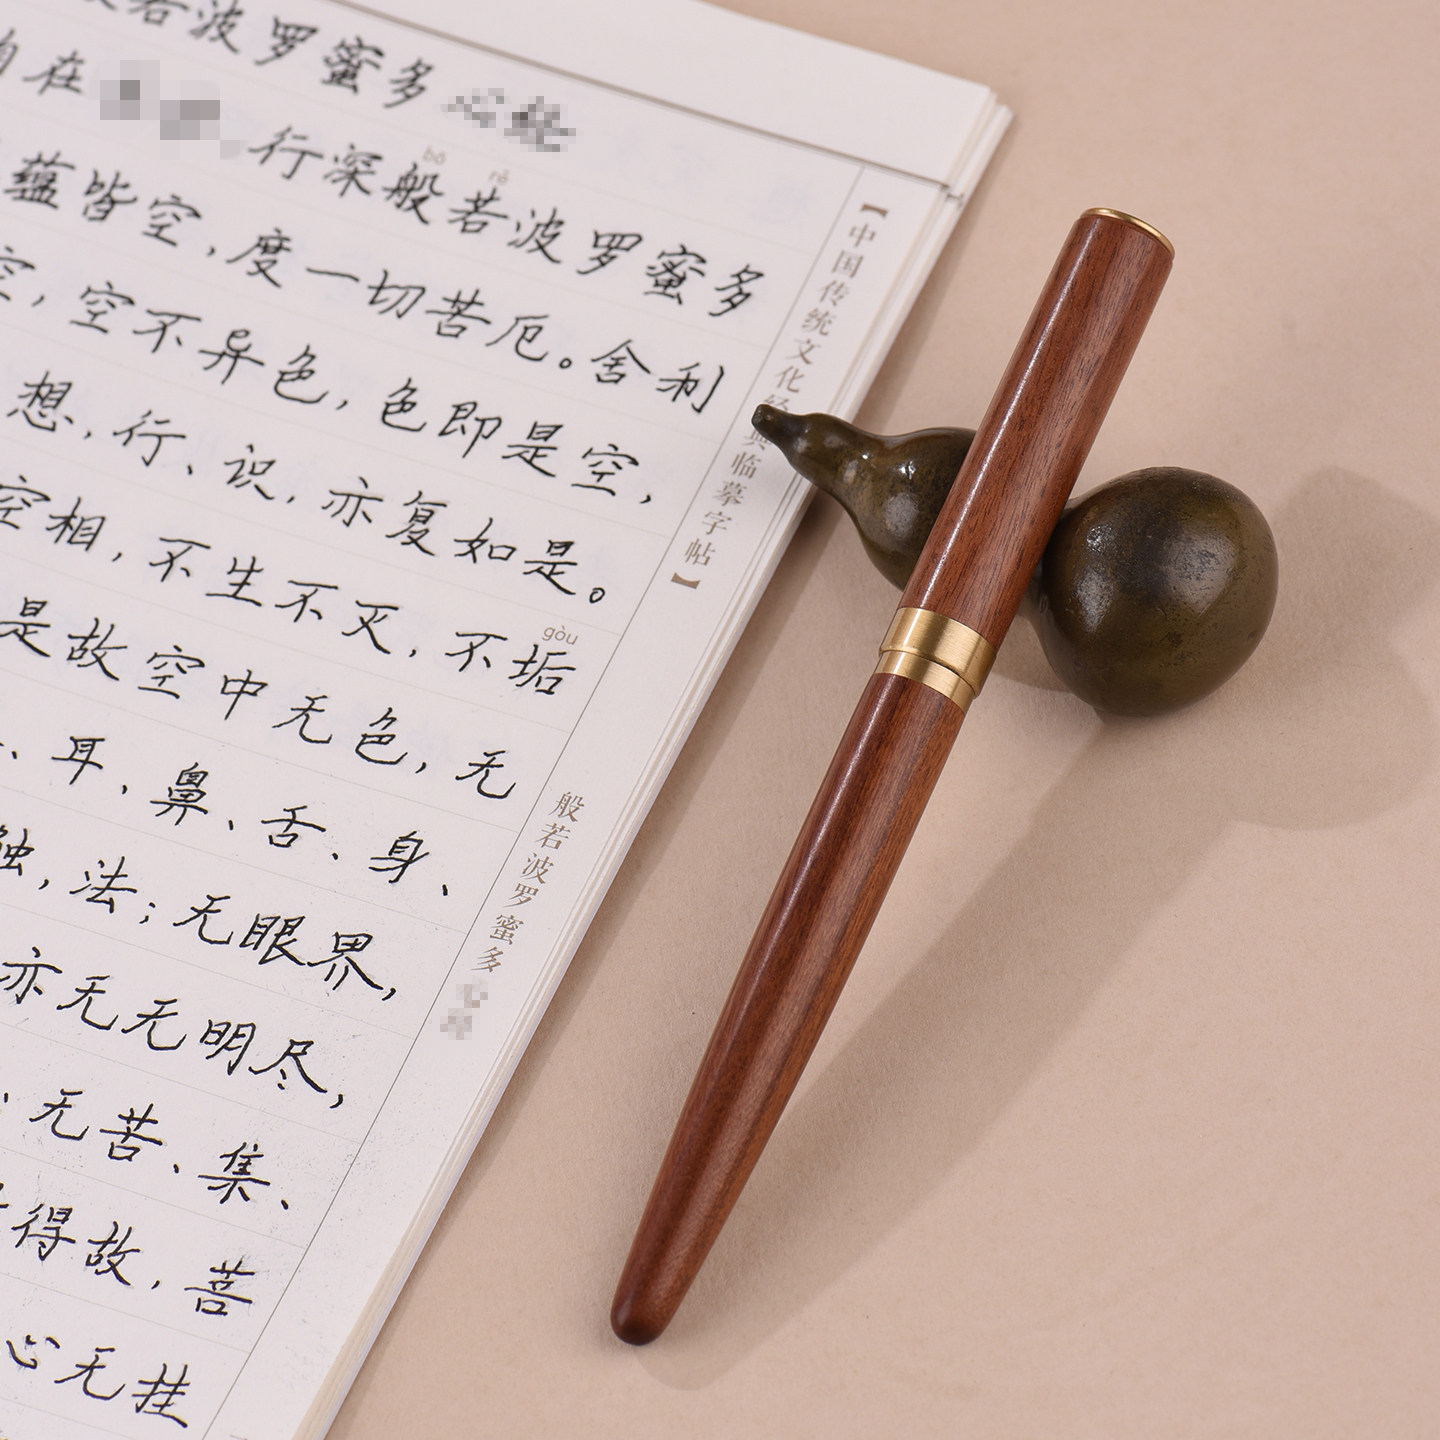 若波罗蜜多
自在
行深般若波罗蜜多
bō rě
蕴皆空，度一切苦厄。舍利
空，空不异色，色即是空，
想，行、识，亦复如是。
空相，不生不灭，不垢
gòu
是故空中无色，无
、耳、鼻、舌、身、
触，法；无眼界，
亦无无明尽，
无苦、集、
得故，菩
心无挂
【中国传统文化经典临摹字帖】
般若波罗蜜多